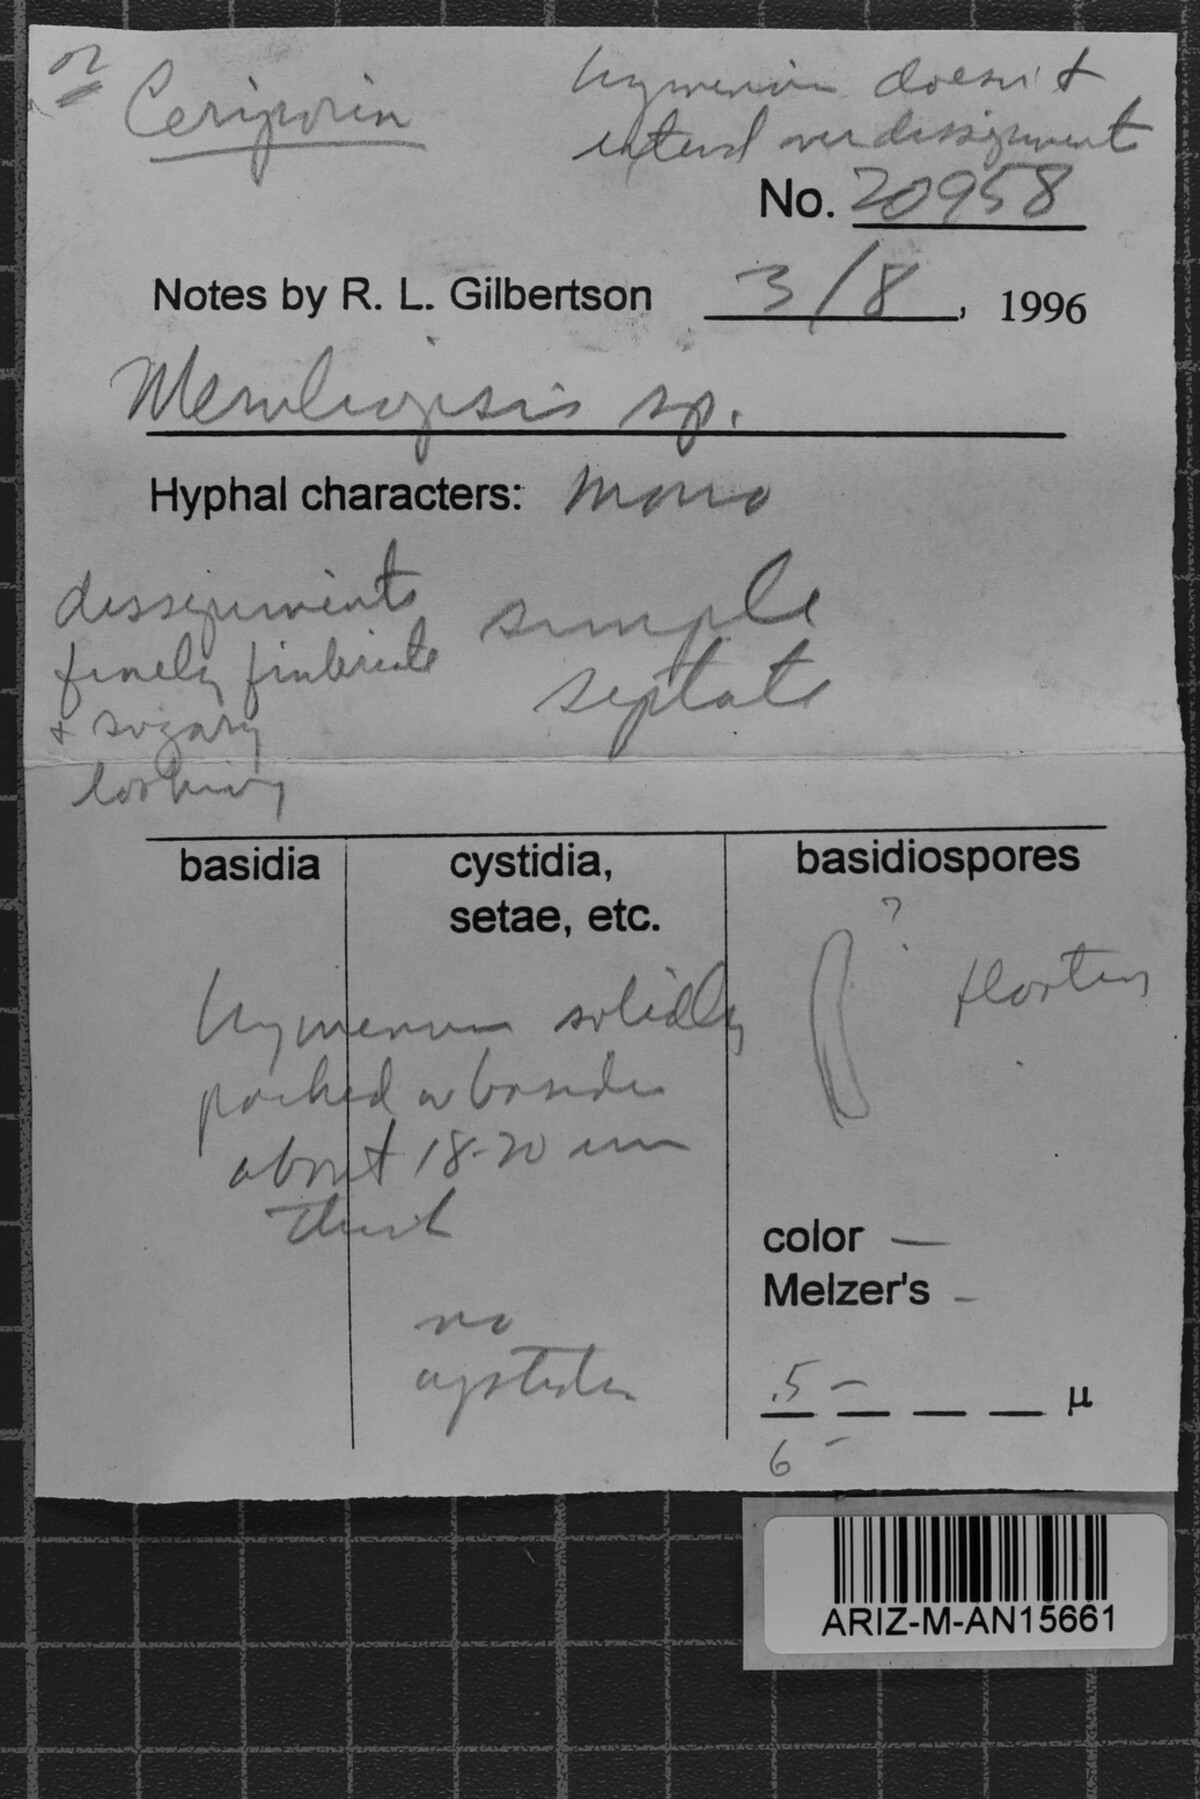 or
Ceriporia
hymenium doesn't
extend over dissepiments
No. 20958
Notes by R. L. Gilbertson 3/8, 1996
Meruliopsis sp.
Hyphal characters: mono
dissepiments
finely fimbriate
+ sugary
looking
simple
septate
basidia
cystidia,
setae, etc.
basidiospores
?
floating
hymenium solidly
packed w basidia
about 18-20 um
thick
no
cystidia
color —
Melzer's -
.5 –
6 -
µ
ARIZ-M-AN15661